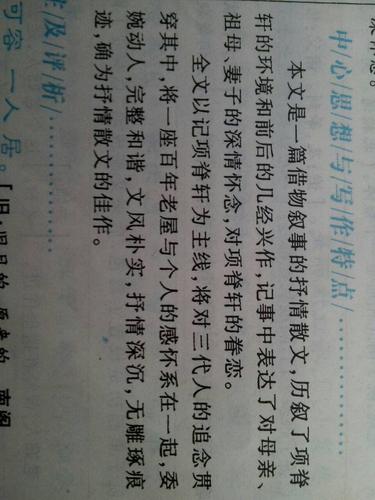 中/心/思/想/与/写/作/特/点/
本文是一篇借物叙事的抒情散文,历叙了项脊
轩的环境和前后的几经兴作,记事中表达了对母亲、
祖母、妻子的深情怀念,对项脊轩的眷恋。
全文以记项脊轩为主线,将对三代人的追念贯
穿其中,将一座百年老屋与个人的感怀系在一起,委
婉动人,完整和谐,文风朴实,抒情深沉,无雕琢痕
迹,确为抒情散文的佳作。
及/评/析/
可容一人居。[旧:旧日的,原来的。南阁